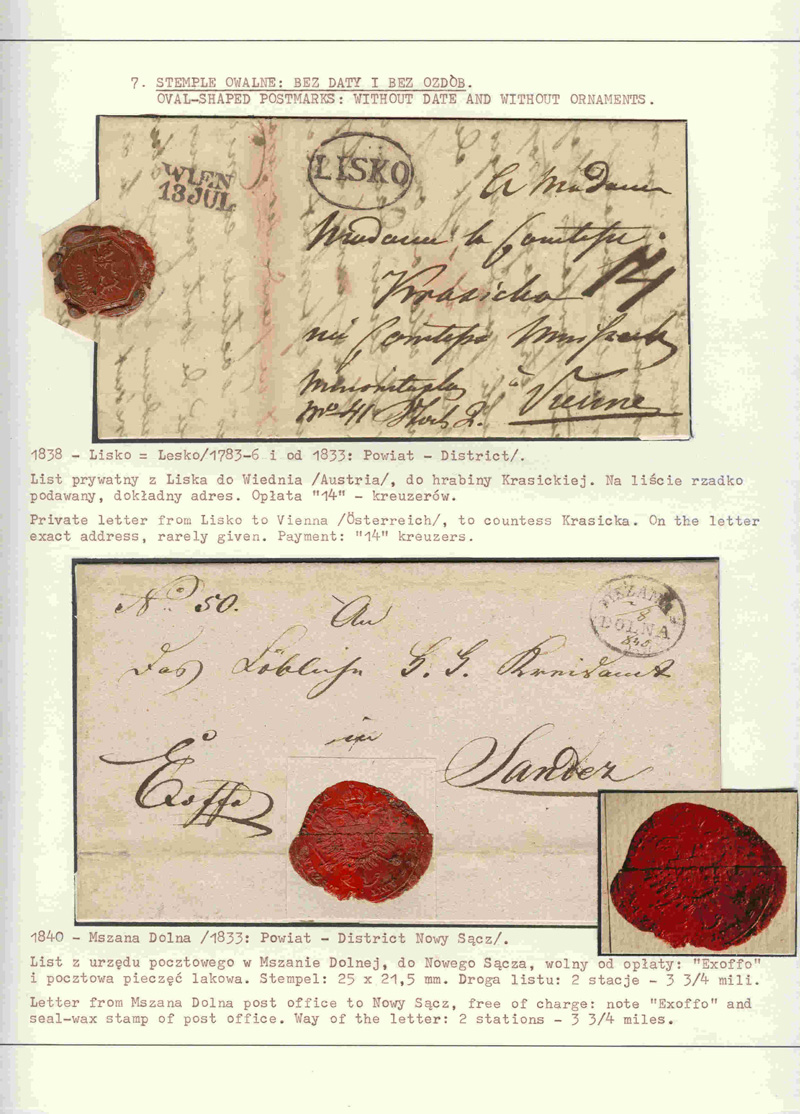 7. STEMPLE OWALNE: BEZ DATY I BEZ OZDÓB.
OVAL-SHAPED POSTMARKS: WITHOUT DATE AND WITHOUT ORNAMENTS.
WIEN
13 JUL
LISKO
A Madame
Madame la Comtesse
Krasicka
14
née Comtesse
à Vienne
1838 - Lisko = Lesko/1783-6 i od 1833: Powiat - District/.
List prywatny z Liska do Wiednia /Austria/, do hrabiny Krasickiej. Na liście rzadko
podawany, dokładny adres. Opłata "14" - kreuzerów.
Private letter from Lisko to Vienna /Österreich/, to countess Krasicka. On the letter
exact address, rarely given. Payment: "14" kreuzers.
No. 50.
An
DOLNA
Das Löbliche K. K. Kreisamt
in
Exoffo
Sandez
1840 - Mszana Dolna /1833: Powiat - District Nowy Sącz/.
List z urzędu pocztowego w Mszanie Dolnej, do Nowego Sącza, wolny od opłaty: "Exoffo"
i pocztowa pieczęć lakowa. Stempel: 25 x 21,5 mm. Droga listu: 2 stacje - 3 3/4 mili.
Letter from Mszana Dolna post office to Nowy Sącz, free of charge: note "Exoffo" and
seal-wax stamp of post office. Way of the letter: 2 stations - 3 3/4 miles.